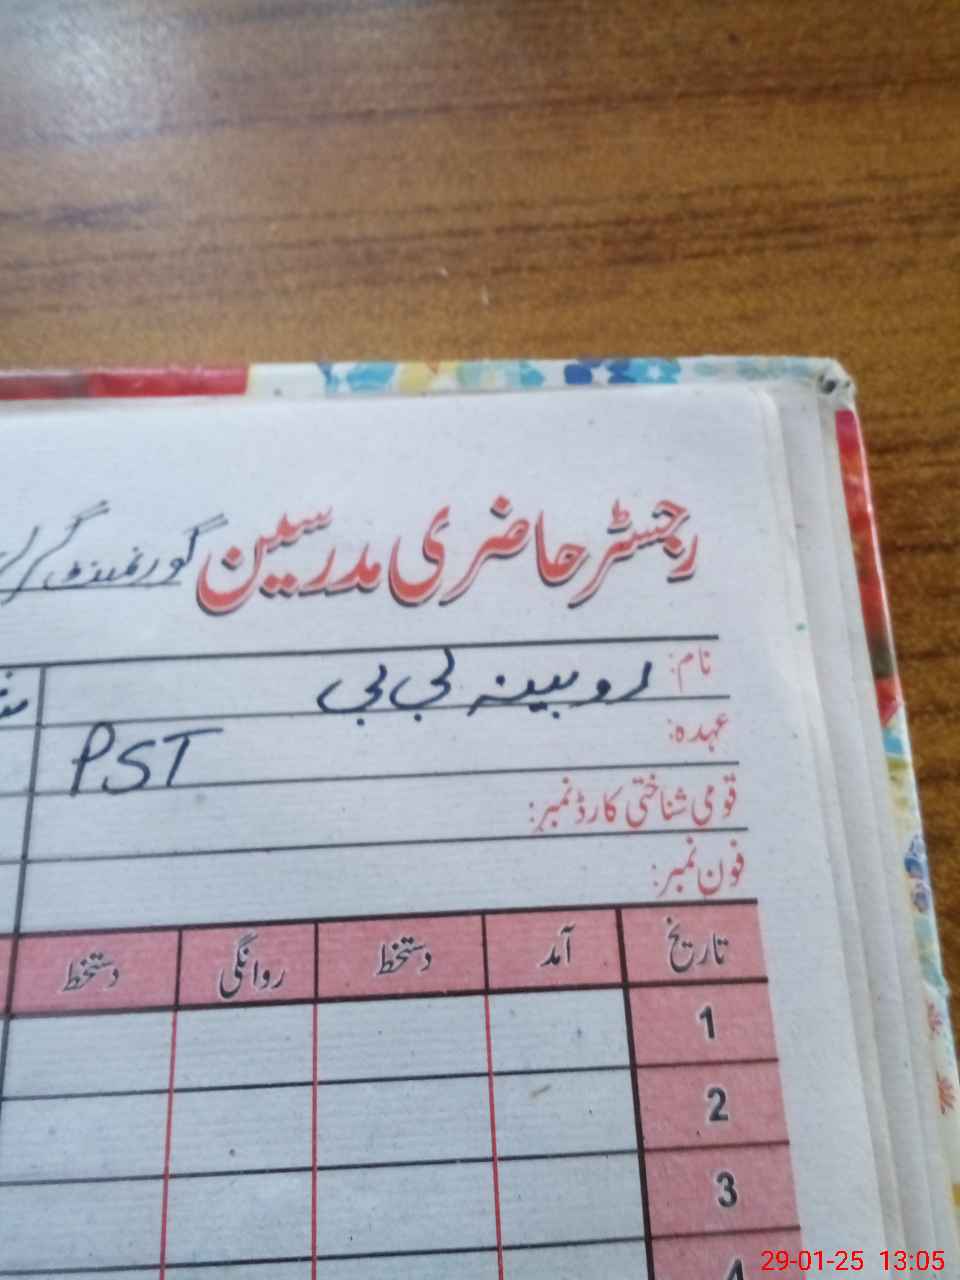 رجسٹر حاضری مدرسین گورنمنٹ/
نام: روبینہ بی بی
عہدہ: PST
قومی شناختی کارڈ نمبر:
فون نمبر:
تاریخ آمد دستخط روانگی دستخط
1
2
3
4
29-01-25 13:05